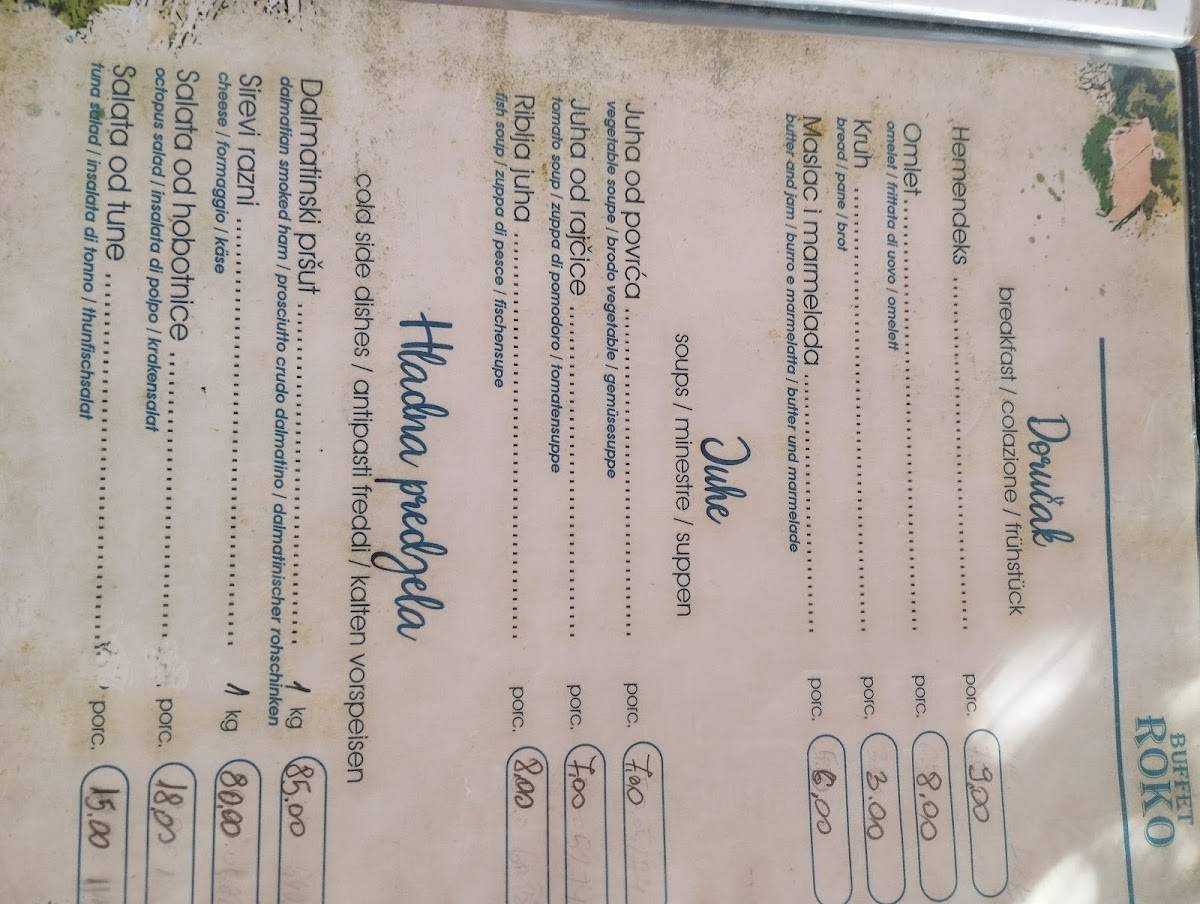 BUFFET
ROKO
Doručak
breakfast / colazione / frühstück
Hemendeks porc. 9,00
Omlet porc. 8,00
omelet / frittata di uovo / omelett
Kruh porc. 3.00
bread / pane / brot
Maslac i marmelada porc. 6,00
butter and jam / burro e marmelatta / butter und marmelade
Juhe
soups / minestre / suppen
Juha od povrća porc. 7,00
vegetable soupe / brodo vegetable / gemüsesuppe
Juha od rajčice porc. 7,00
tomato soup / zuppa di pomodoro / tomatensuppe
Riblja juha porc. 8,00
fish soup / zuppa di pesce / fischensupe
Hladna predjela
cold side dishes / antipasti freddi / kalten vorspeisen
Dalmatinski pršut 1 kg 85.00
dalmatian smoked ham / prosciutto crudo dalmatino / dalmatinischer rohschinken
Sirevi razni 1 kg 80,00
cheese / formaggio / käse
Salata od hobotnice porc. 18,00
octopus salad / insalata di polpo / krakensalat
Salata od tune porc. 15.00
tuna salad / insalata di tonno / thunfischsalat